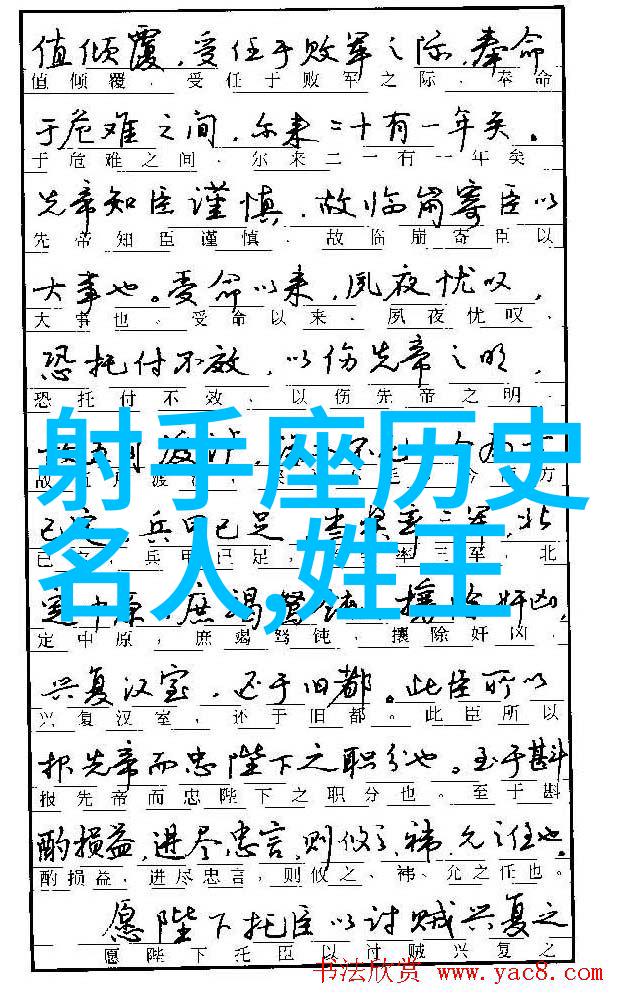 值倾覆，受任于败军之际，奉命
值倾覆，受任于败军之际，奉命
于危难之间，尔来二十有一年矣。
于危难之间，尔来二一有一年矣
先帝知臣谨慎，故临崩寄臣以
先帝知臣谨慎，故临崩寄臣以
大事也。受命以来，夙夜忧叹，
大事也。受命以来，夙夜忧叹，
恐托付不效，以伤先帝之明，
恐托付不效，以伤先帝之明，
射手座历史
名人,姓王
五月渡
故 月渡 毛 今 方
已定，兵甲已足 率三军，北
已 兵甲已足， 率三军，北
定中原，庶竭驽钝，攘除奸凶，
定中原，庶竭驽钝，攘除奸凶，
兴复汉室，还于旧都。此臣所以
兴复汉室，还于旧都。此臣所以
报先帝而忠陛下之职分也。至于斟
报先帝而忠陛下之职分也。至于斟
酌损益，进尽忠言，则攸之、祎、允之任也。
酌损益，进尽忠言，则攸之、祎、允之任也。
愿陛下托臣以讨贼兴复之
愿陛下托臣以讨贼兴复之
书法欣赏 www.yac8.com